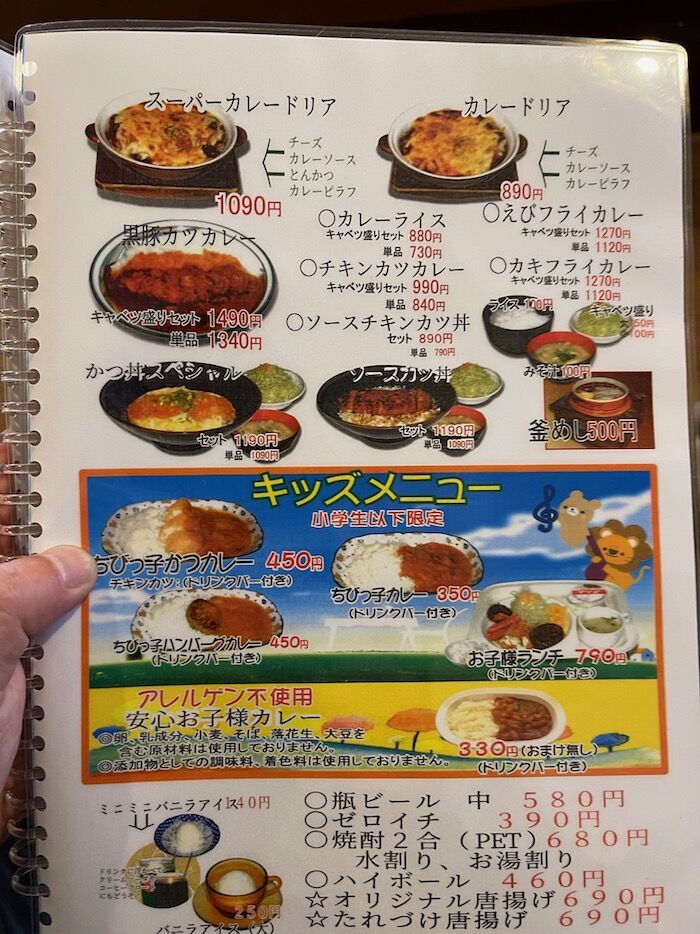 スーパーカレードリア
チーズ
カレーソース
とんかつ
カレーピラフ
1090円
カレードリア
チーズ
カレーソース
カレーピラフ
890円
黒豚カツカレー
キャベツ盛りセット 1490円
単品 1340円
〇カレーライス
キャベツ盛りセット 880円
単品 730円
〇チキンカツカレー
キャベツ盛りセット 990円
単品 840円
〇ソースチキンカツ丼
セット 890円
単品 790円
〇えびフライカレー
キャベツ盛りセット 1270円
単品 1120円
〇カキフライカレー
キャベツ盛りセット 1270円
単品 1120円
ライス 100円
キャベツ盛り
みそ汁100円
かつ丼スペシャル
セット 1190円
単品 1090円
ソースカツ丼
セット 1190円
単品 1090円
釜めし500円
キッズメニュー
小学生以下限定
ちびっ子かつカレー 450円
チキンカツ:(ドリンクバー付き)
ちびっ子カレー 350円
(ドリンクバー付き)
ちびっ子ハンバーグカレー 450円
(ドリンクバー付き)
お子様ランチ 790円
(ドリンクバー付き)
アレルゲン不使用
安心お子様カレー
◎卵、乳成分、小麦、そば、落花生、大豆を
含む原材料は使用しておりません。
◎添加物としての調味料、着色料は使用しておりません。
330円(おまけ無し)
(ドリンクバー付き)
ミニミニバニラアイス140円
バニラアイス(大)
250円
〇瓶ビール 中 580円
〇ゼロイチ 390円
〇焼酎2合(PET)680円
水割り、お湯割り
〇ハイボール 460円
☆オリジナル唐揚げ690円
☆たれづけ唐揚げ 690円